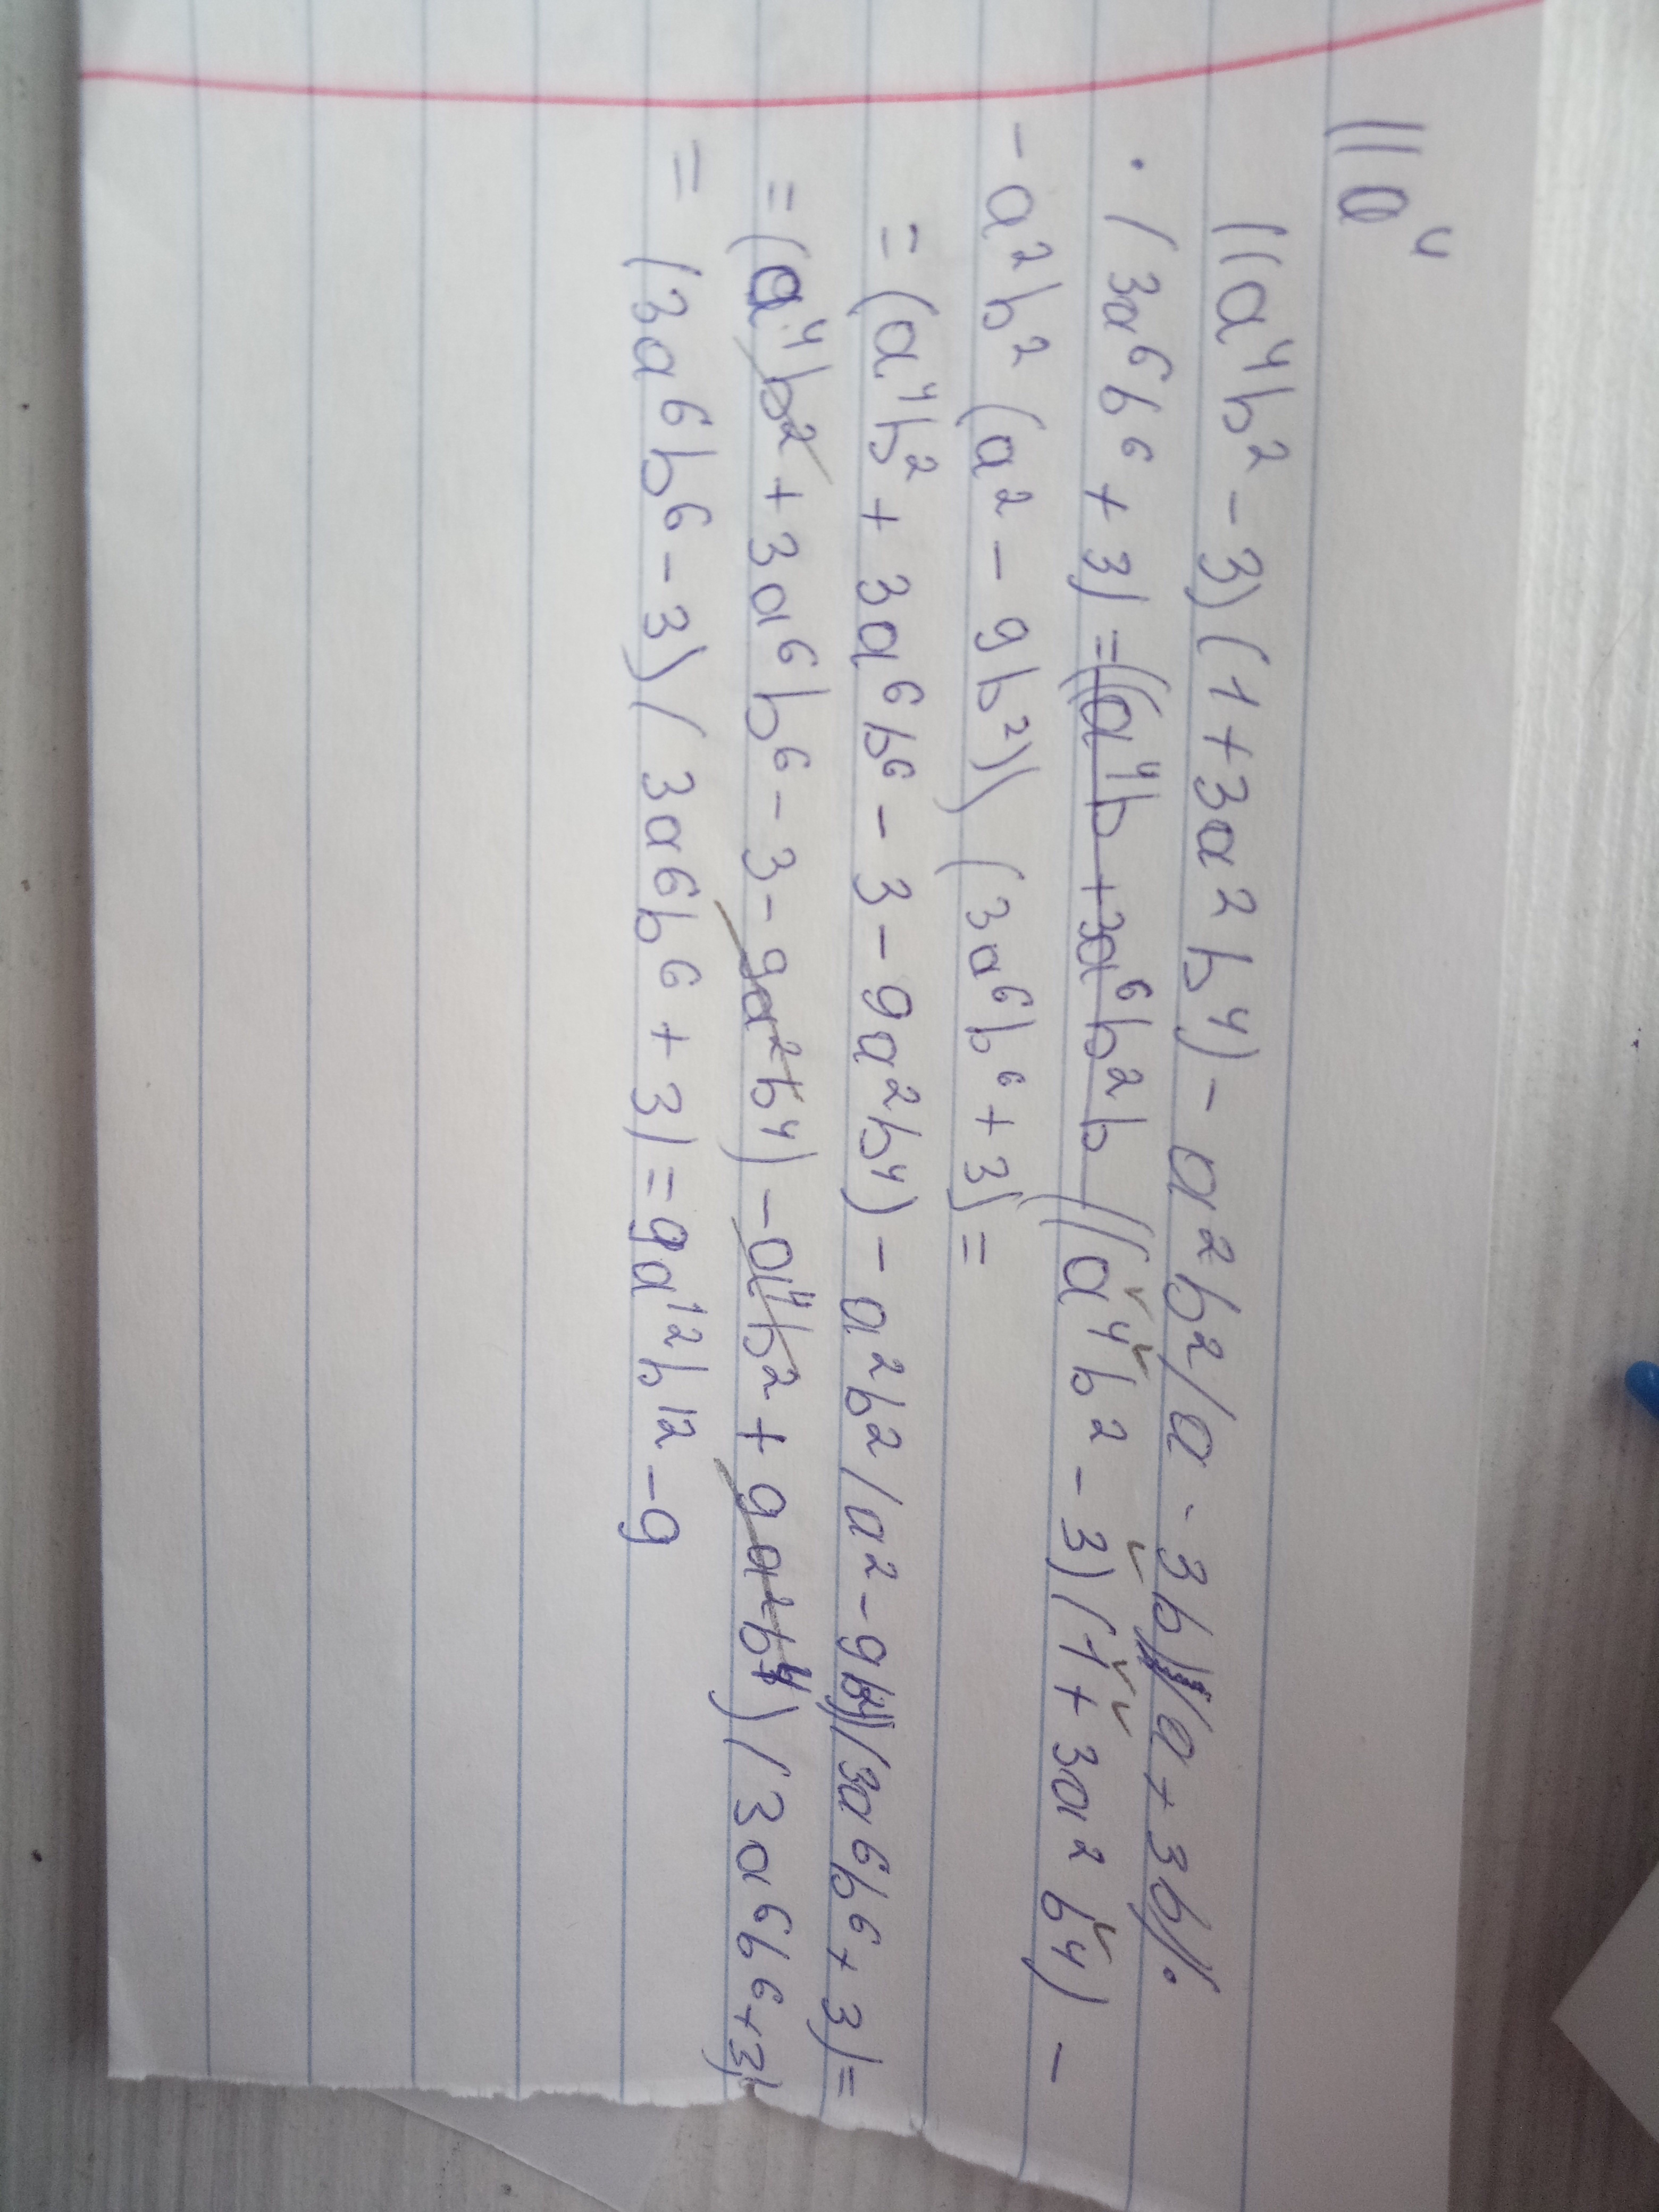 ((a⁴
((a⁴b² - 3)(1 + 3a²b⁴) - a²b²(a - 3b)(a + 3b)) ·
· (3a⁶b⁶ + 3) = ((a⁴b² - 3)(1 + 3a²b⁴) -
- a²b² (a² - 9b²)) (3a⁶b⁶ + 3) =
= (a⁴b² + 3a⁶b⁶ - 3 - 9a²b⁴) - a²b²(a² - 9b²))(3a⁶b⁶ + 3) =
= (a⁴b² + 3a⁶b⁶ - 3 - 9a²b⁴) - a⁴b² + 9a²b⁴) (3a⁶b⁶ + 3)
= (3a⁶b⁶ - 3)(3a⁶b⁶ + 3) = 9a¹²b¹² - 9